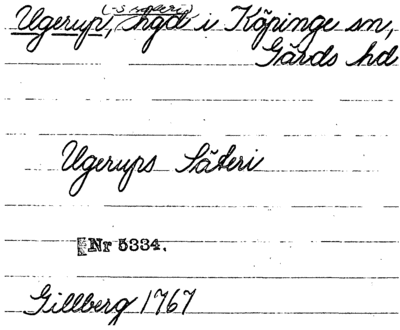 Ugerup, (-s säteri) hgd i Köpinge sn,
Gärds hd
Ugerups Säteri
Nr 5334.
Gillberg 1767